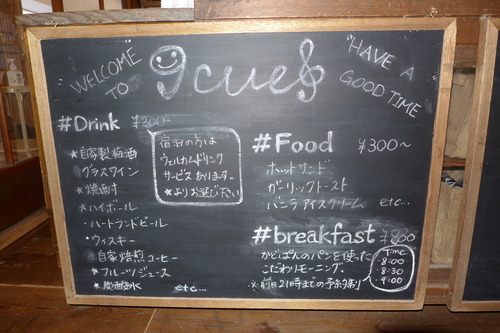 "WELCOME TO
gcue
"HAVE A GOOD TIME"
#Drink ¥300~
★自家製梅酒
グラスワイン
★焼酎
★ハイボール
・ハートランドビール
・ウィスキー
自家焙煎コーヒー
★フルーツジュース
★炭酸水
etc...
宿泊の方は
ウェルカムドリンク
サービスあります。
★よりお選び下さい
#Food ¥300~
ホットサンド
ガーリックトースト
バニラアイスクリーム etc...
#breakfast
かどぱんのパンを使った
こだわりモーニング、
※前日21時までの予約制
Time
・8:00
・8:30
・9:00